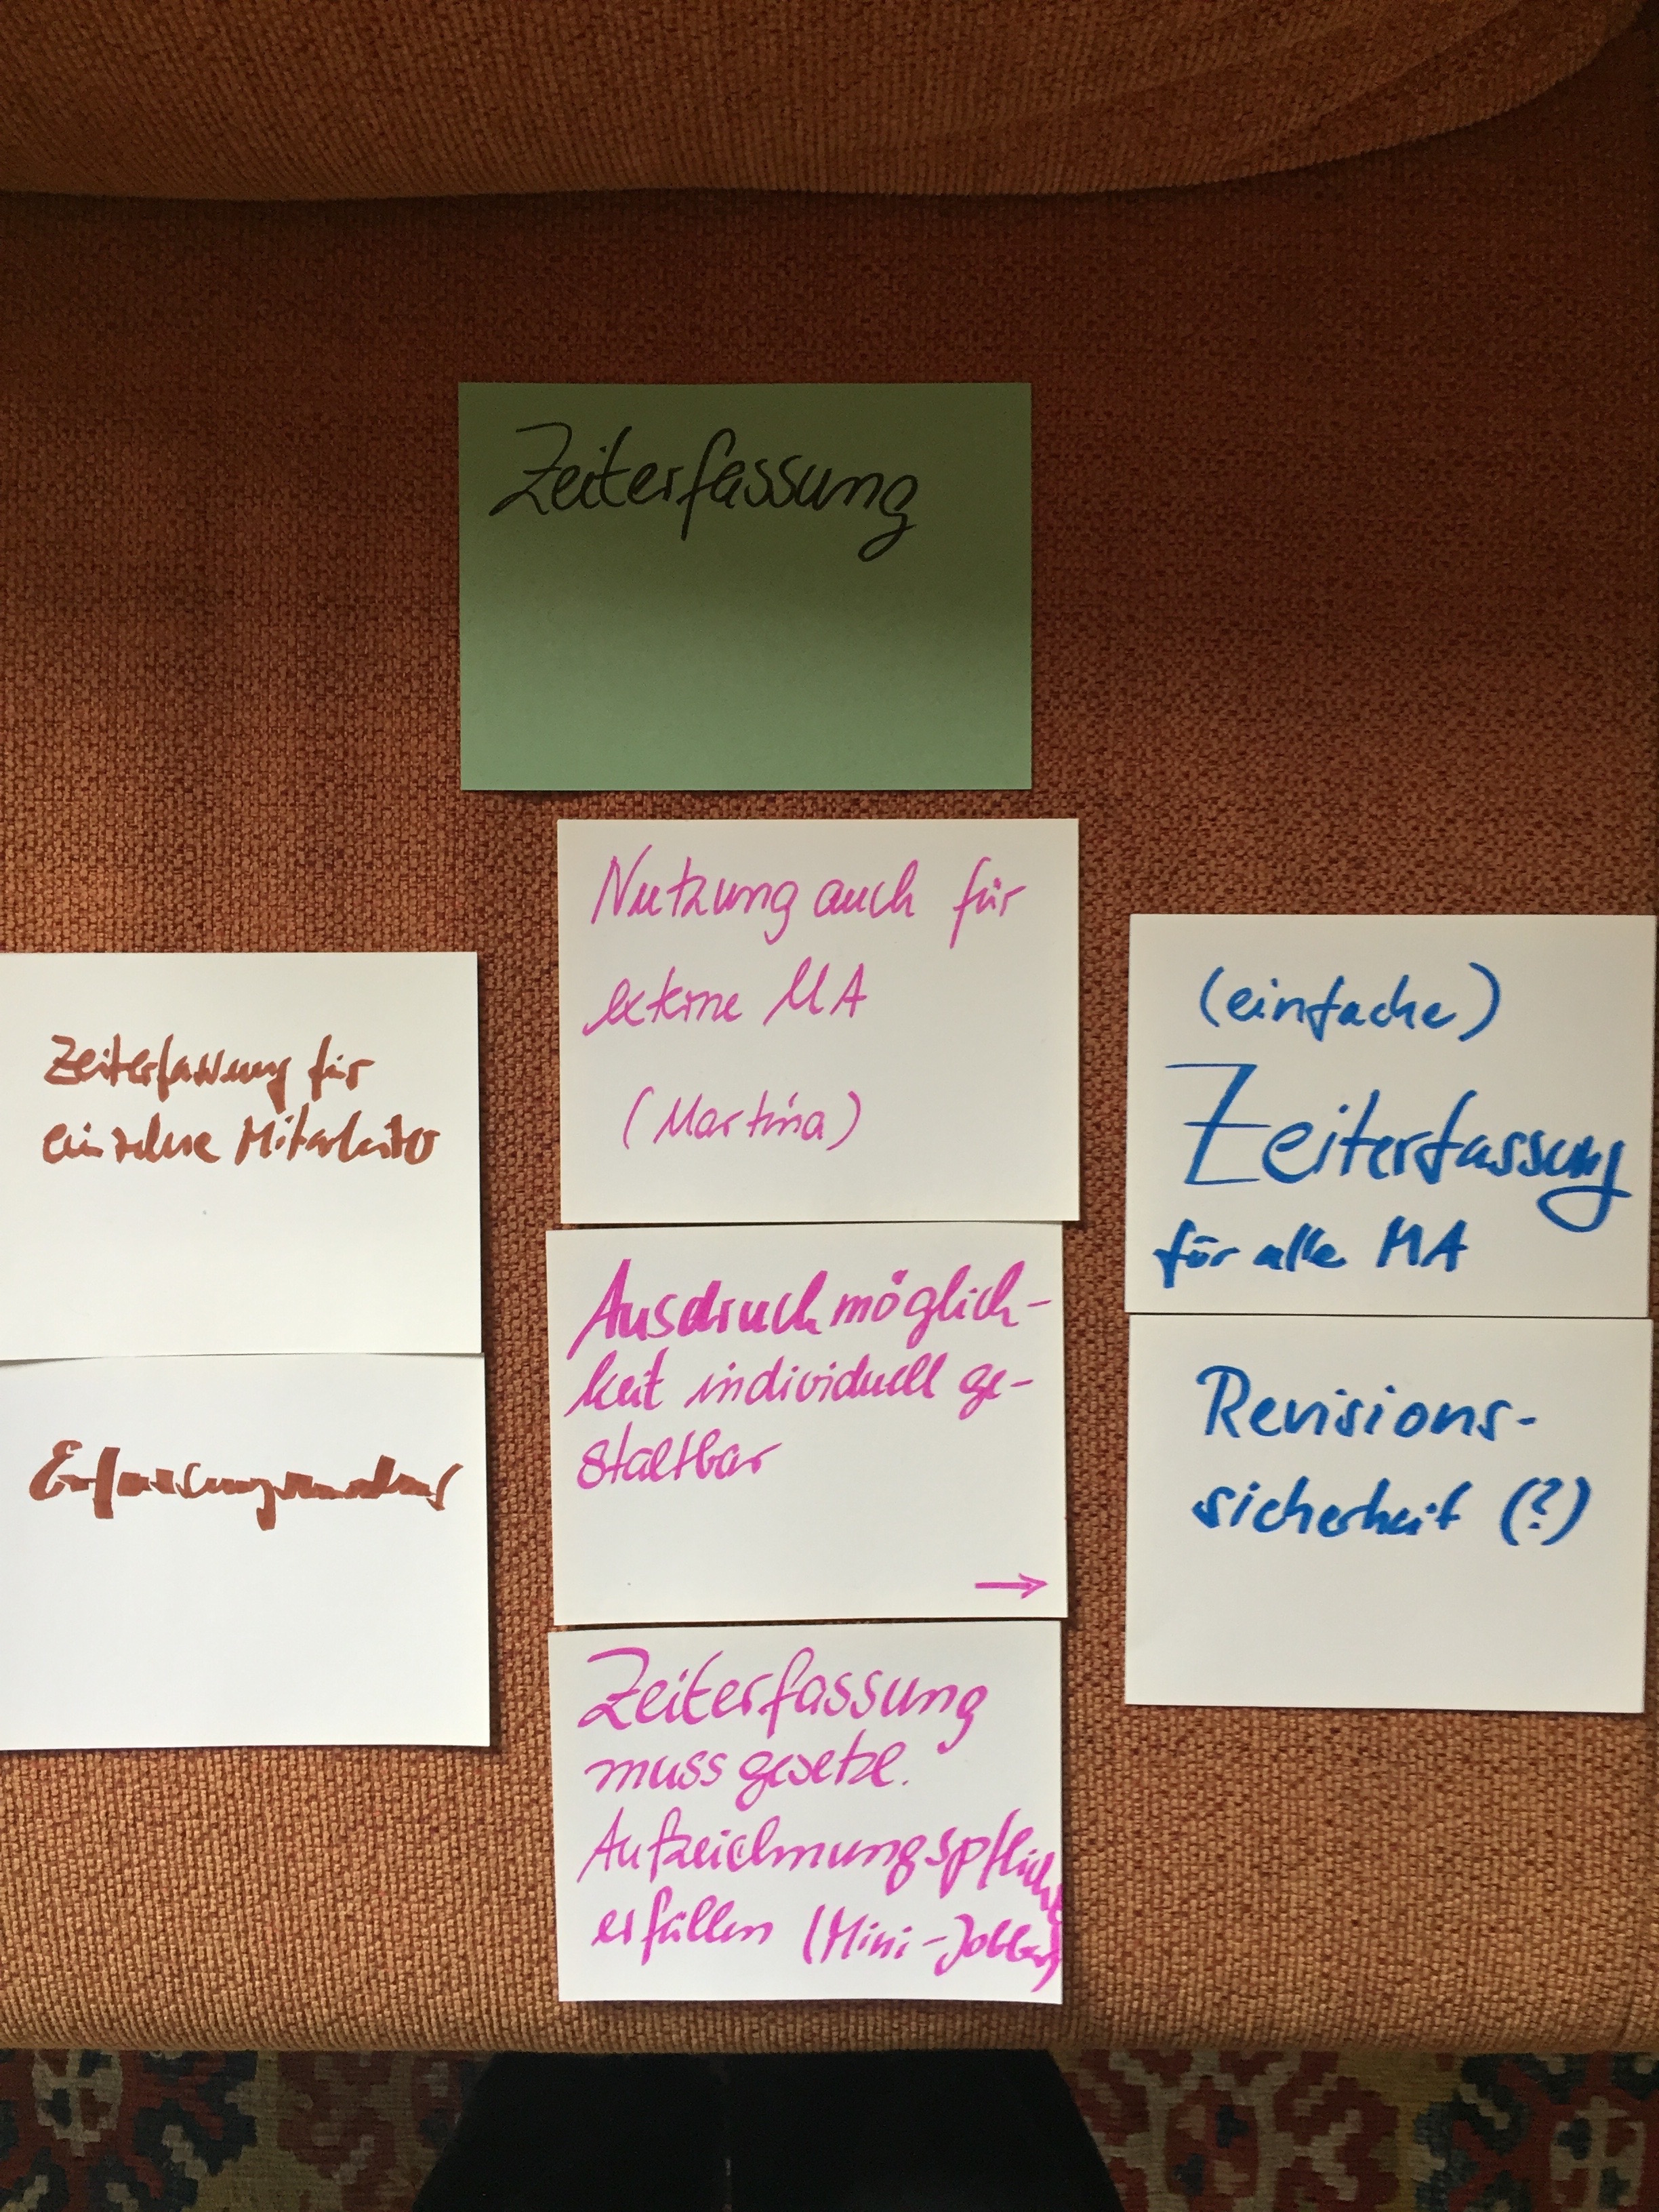 Zeiterfassung
Zeiterfassung für
einzelne Mitarbeiter
Erfassungsmodus
Nutzung auch für
externe MA
(Martina)
Ausdruckmöglich-
keit individuell ge-
staltbar
→
Zeiterfassung
muss gesetzl.
Aufzeichnungspflicht
erfüllen (Mini-Jobber)
(einfache)
Zeiterfassung
für alle MA
Revisions-
sicherheit (?)